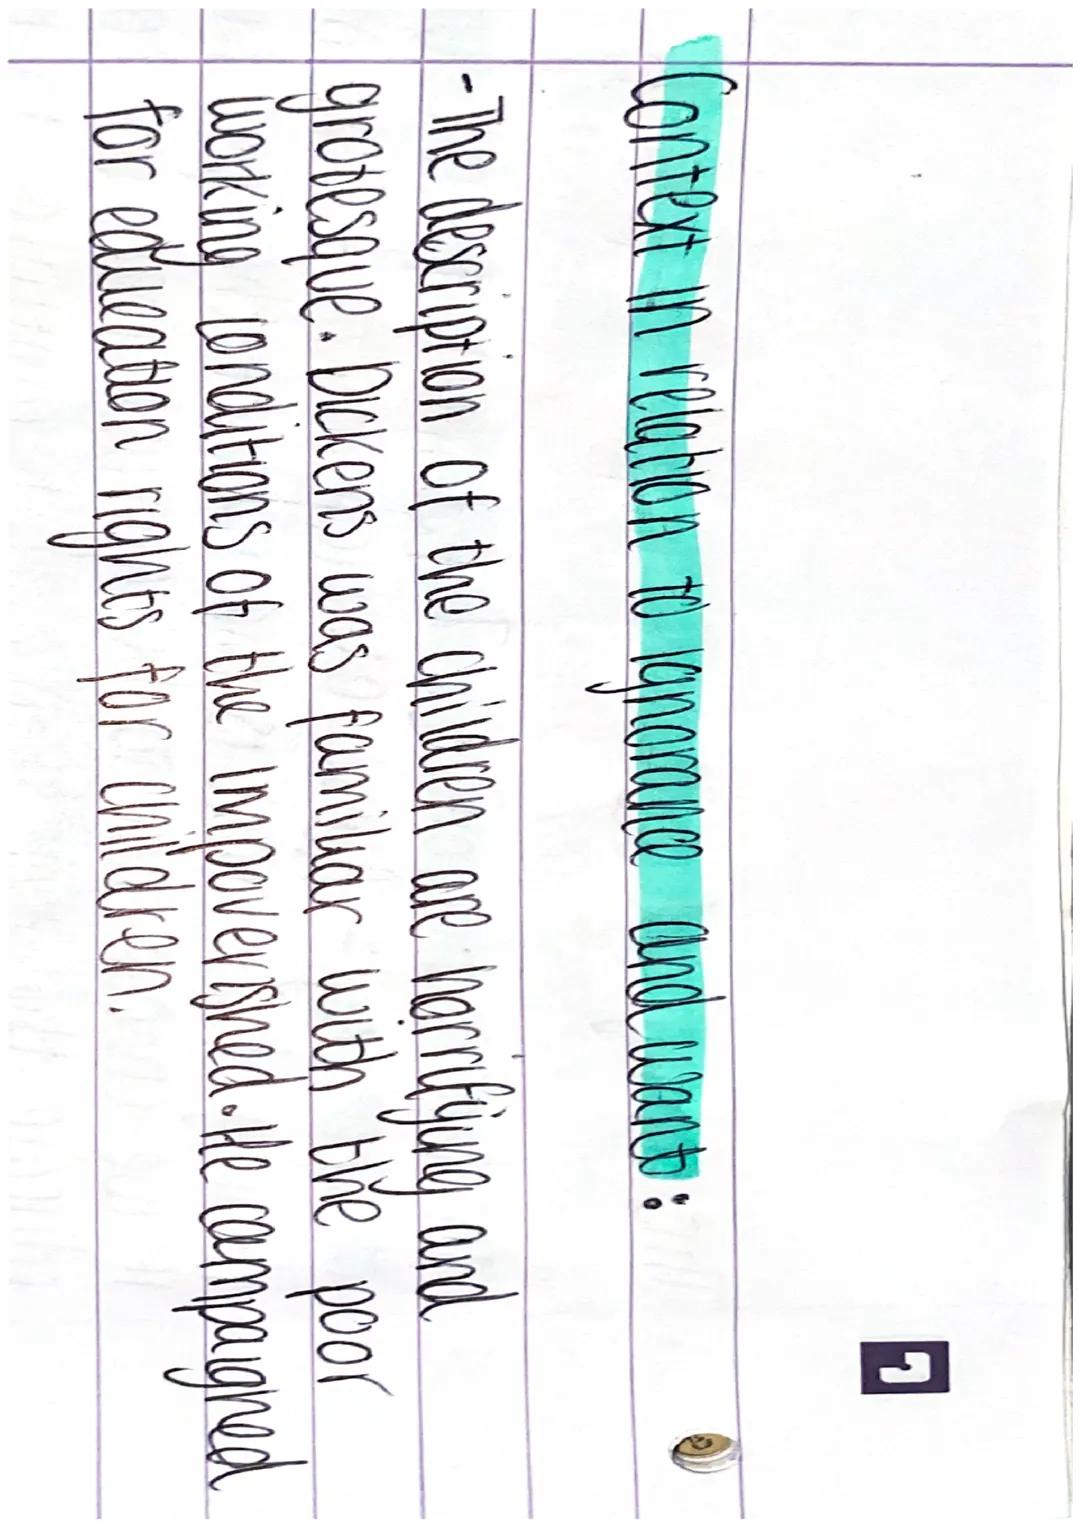 Context in relation to ignorance and want:
- The description of the children are horrifying and
grotesque. Dickens was familiar with the poor
working conditions of the impoverished. He campaigned
for education rights for children.